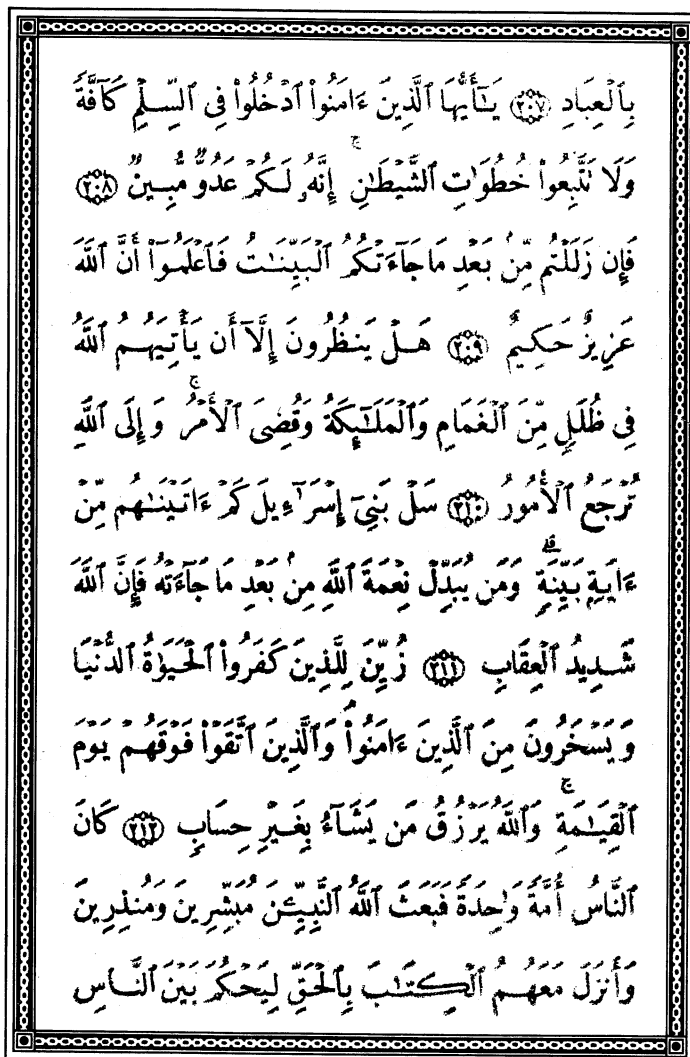 بِٱلْعِبَادِ ٢٠٧ يَٰٓأَيُّهَا ٱلَّذِينَ ءَامَنُوا۟ ٱدْخُلُوا۟ فِى ٱلسِّلْمِ كَآفَّةً
وَلَا تَتَّبِعُوا۟ خُطُوَٰتِ ٱلشَّيْطَٰنِ ۚ إِنَّهُۥ لَكُمْ عَدُوٌّ مُّبِينٌ ٢٠٨
فَإِن زَلَلْتُم مِّنۢ بَعْدِ مَا جَآءَتْكُمُ ٱلْبَيِّنَٰتُ فَٱعْلَمُوٓا۟ أَنَّ ٱللَّهَ
عَزِيزٌ حَكِيمٌ ٢٠٩ هَلْ يَنظُرُونَ إِلَّآ أَن يَأْتِيَهُمُ ٱللَّهُ
فِى ظُلَلٍ مِّنَ ٱلْغَمَامِ وَٱلْمَلَٰٓئِكَةُ وَقُضِىَ ٱلْأَمْرُ ۚ وَإِلَى ٱللَّهِ
تُرْجَعُ ٱلْأُمُورُ ٢١٠ سَلْ بَنِىٓ إِسْرَٰٓءِيلَ كَمْ ءَاتَيْنَٰهُم مِّنْ
ءَايَةٍۭ بَيِّنَةٍ ۗ وَمَن يُبَدِّلْ نِعْمَةَ ٱللَّهِ مِنۢ بَعْدِ مَا جَآءَتْهُ فَإِنَّ ٱللَّهَ
شَدِيدُ ٱلْعِقَابِ ٢١١ زُيِّنَ لِلَّذِينَ كَفَرُوا۟ ٱلْحَيَوٰةُ ٱلدُّنْيَا
وَيَسْخَرُونَ مِنَ ٱلَّذِينَ ءَامَنُوا۟ ۘ وَٱلَّذِينَ ٱتَّقَوْا۟ فَوْقَهُمْ يَوْمَ
ٱلْقِيَٰمَةِ ۗ وَٱللَّهُ يَرْزُقُ مَن يَشَآءُ بِغَيْرِ حِسَابٍ ٢١٢ كَانَ
ٱلنَّاسُ أُمَّةً وَٰحِدَةً فَبَعَثَ ٱللَّهُ ٱلنَّبِيِّۦنَ مُبَشِّرِينَ وَمُنذِرِينَ
وَأَنزَلَ مَعَهُمُ ٱلْكِتَٰبَ بِٱلْحَقِّ لِيَحْكُمَ بَيْنَ ٱلنَّاسِ